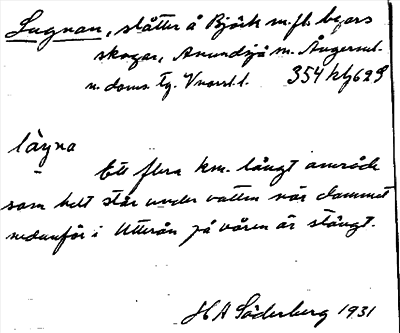 Lugnan, slåtter å Björk m.fl. byars
skogar, Anundsjö sn. Ångerml.
n. doms. tg. Vnorrl. l. 354 kbf 629
lägna
Ett flera km. långt område
som helt står under vatten när dammet
nedanför i Utterån på våren är stängt.
H A Söderberg 1931